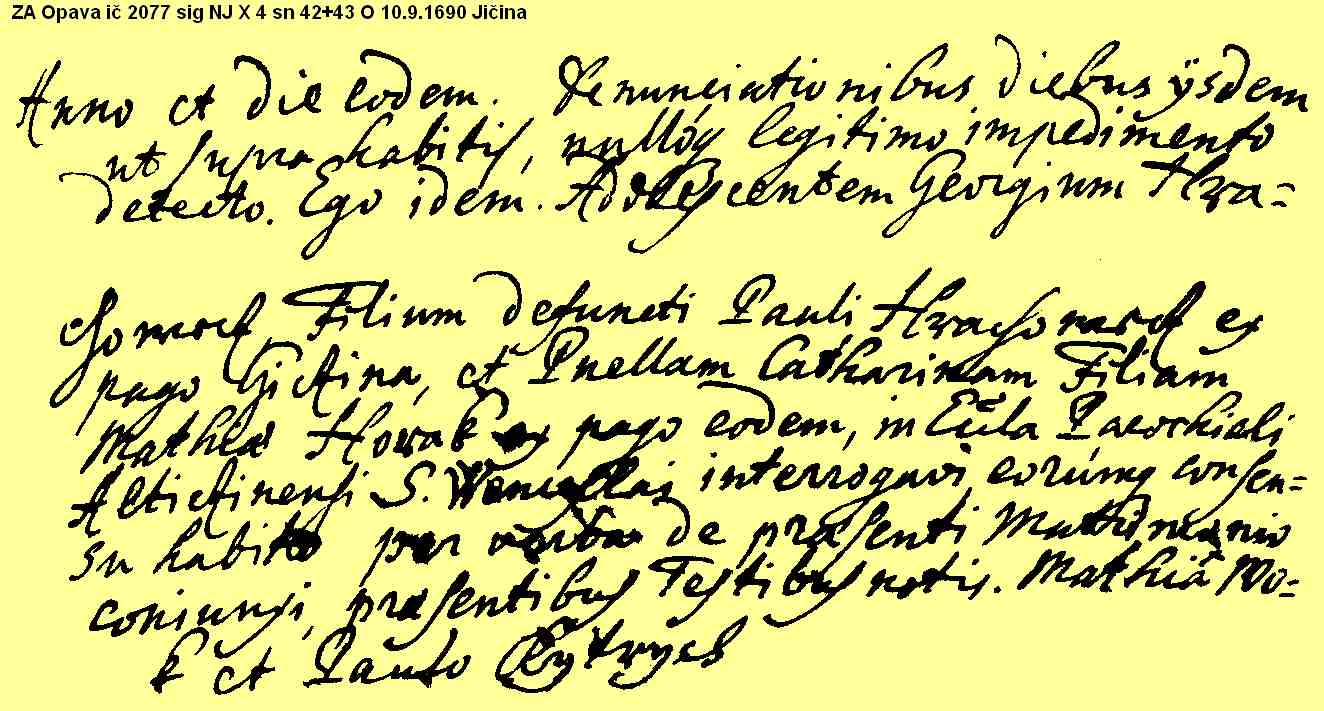 ZA Opava ič 2077 sig NJ X 4 sn 42+43 O 10.9.1690 Jičina
Anno et die eodem. Denunciationibus diebus ÿsdem
ut supra habitis, nulloq legitimo impedimento
detecto. Ego idem. Adolescentem Georgium Hra-
Filium defuncti Pauli ex
pago Gicžina, et Puellam Catharinam Filiam
Mathiæ Horak ex pago eodem, in Eccla Parochiali
S. Wenceslai interrogavi, eorumq consen-
su habito per verba de præsenti Matrimonio
coniunxi, præsentibus Testibus notis. Mathia Wo-
k et Paulo